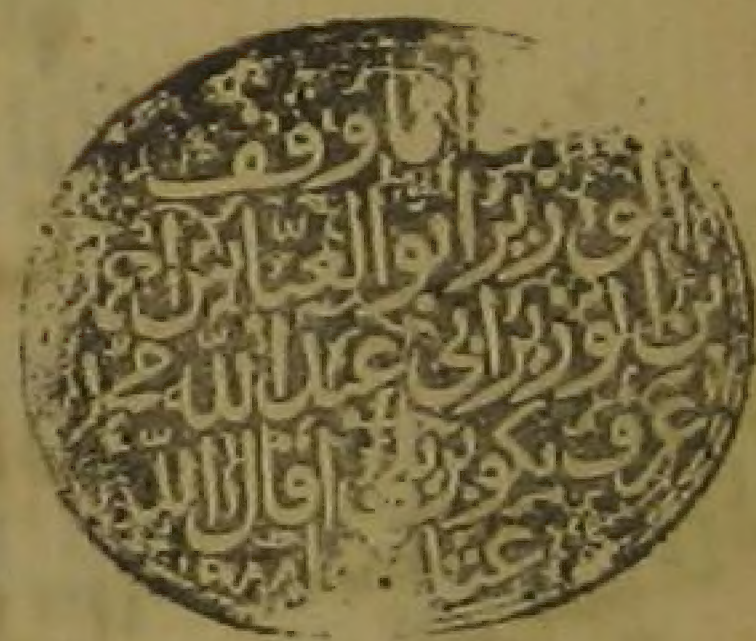 مما وقف
الوزير ابو العباس احمد
بن الوزير ابي عبد الله محمد
عرف بكوبريلي اقال الله
عثارهما